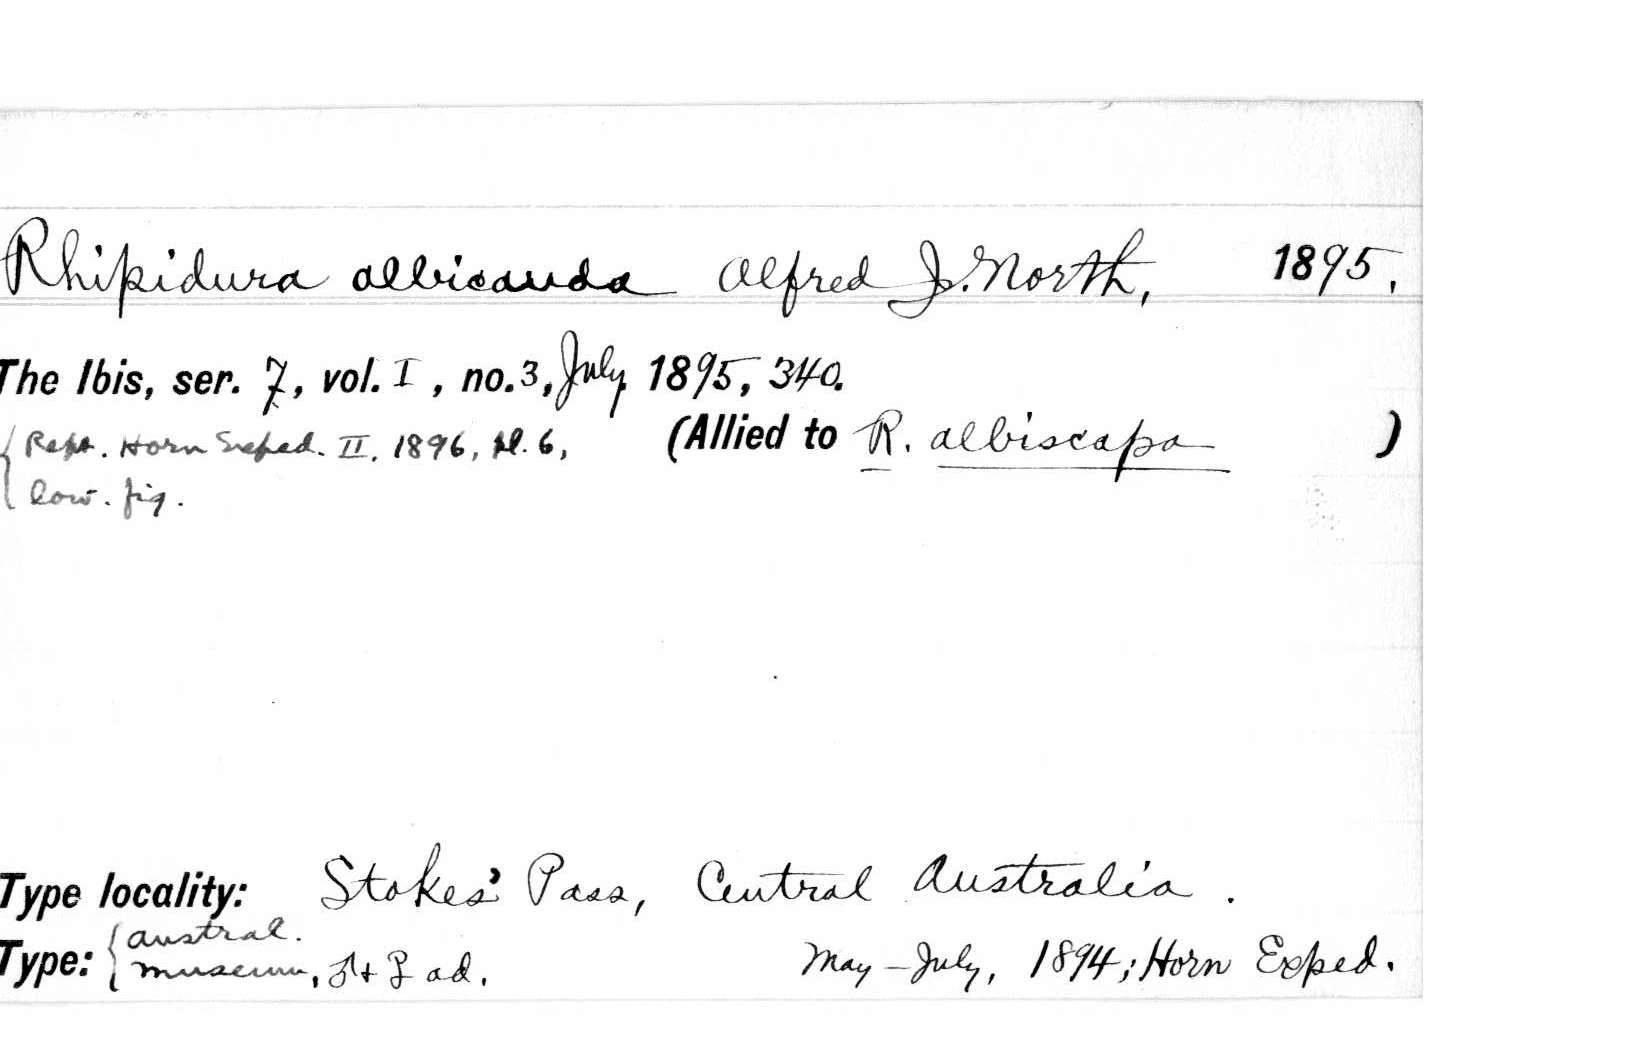 Rhipidura albicauda Alfred J. North, 1895.
The Ibis, ser. 7, vol. I, no. 3, July, 1895, 340.
(Allied to R. albiscapa )
{Rept. Horn Exped. II, 1896, pl. 6,
low. fig.
Type locality: Stokes' Pass, Central Australia.
Type: {Austral.
Museum, ♂ + ♀ ad. May–July, 1894; Horn Exped.